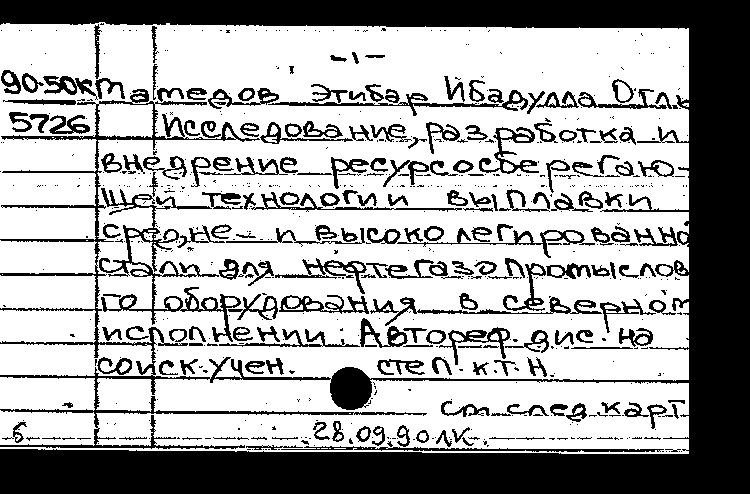 -1-
90-50к Мамедов Этибар Ибадулла Отлы
5726 Исследование, разработка и
внедрение ресурсосберегаю-
щей технологии выплавки
средне- и высоколегированно
стали для нефтегазопромыслов
го оборудования в северном
исполнении: Автореф. дис. на
соиск. учен. степ. к.т.н.
см след. карт
б 28.09.90 ЛК.